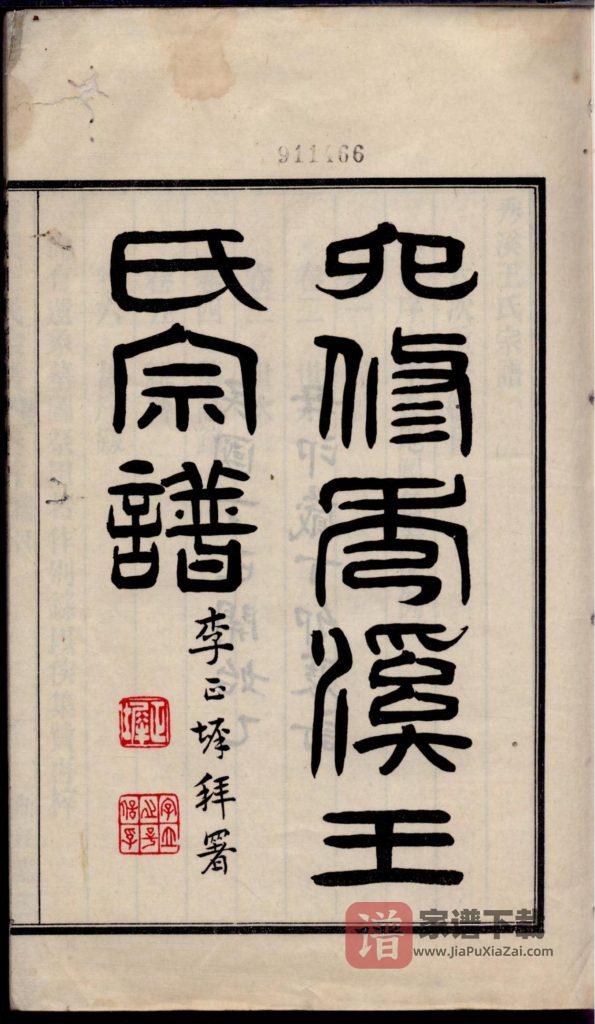 911466
六修秀溪王
氏宗譜
李正拜署
谱 家谱下载
www.JiaPuXiaZai.com